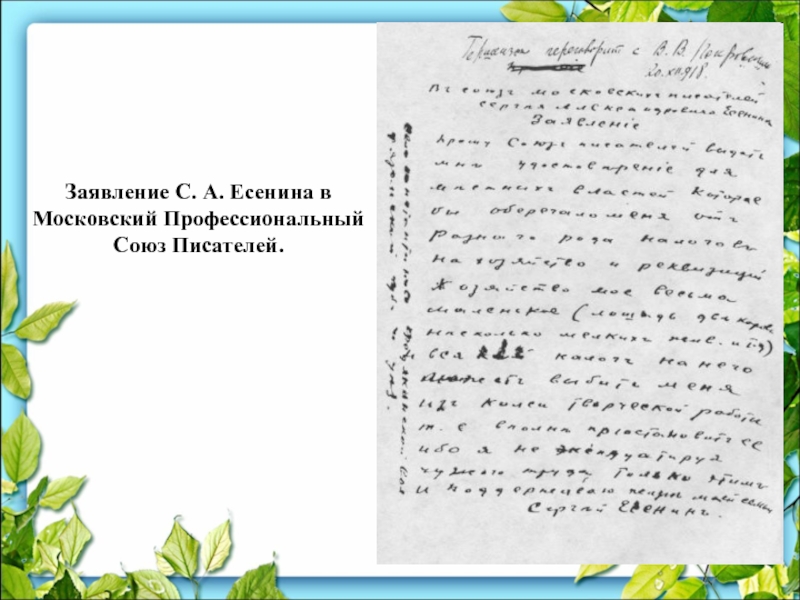 Заявление С. А. Есенина в
Московский Профессиональный
Союз Писателей.
переговорить с В. В.
20.XII.918.
Въ союзъ московскихъ писателей
Сергея Александровича Есенина
Заявленіе
Прошу Союзъ писателей выдать
мнѣ удостоверение для
местныхъ властей которое
бы оберегало меня отъ
разного рода налоговъ
на хозяйство и реквизиций
Хозяйство мое весьма
маленькое (лошадь две коровы
несколько мелкихъ и т.д)
всякий налогъ на него
может выбить меня
изъ колеи творческой работы
т. е вполне приостановить ее
ибо я не эксплуатируя
чужого труда только этимъ
и поддерживаю жизнь моей семьи
Сергей Есенинъ.